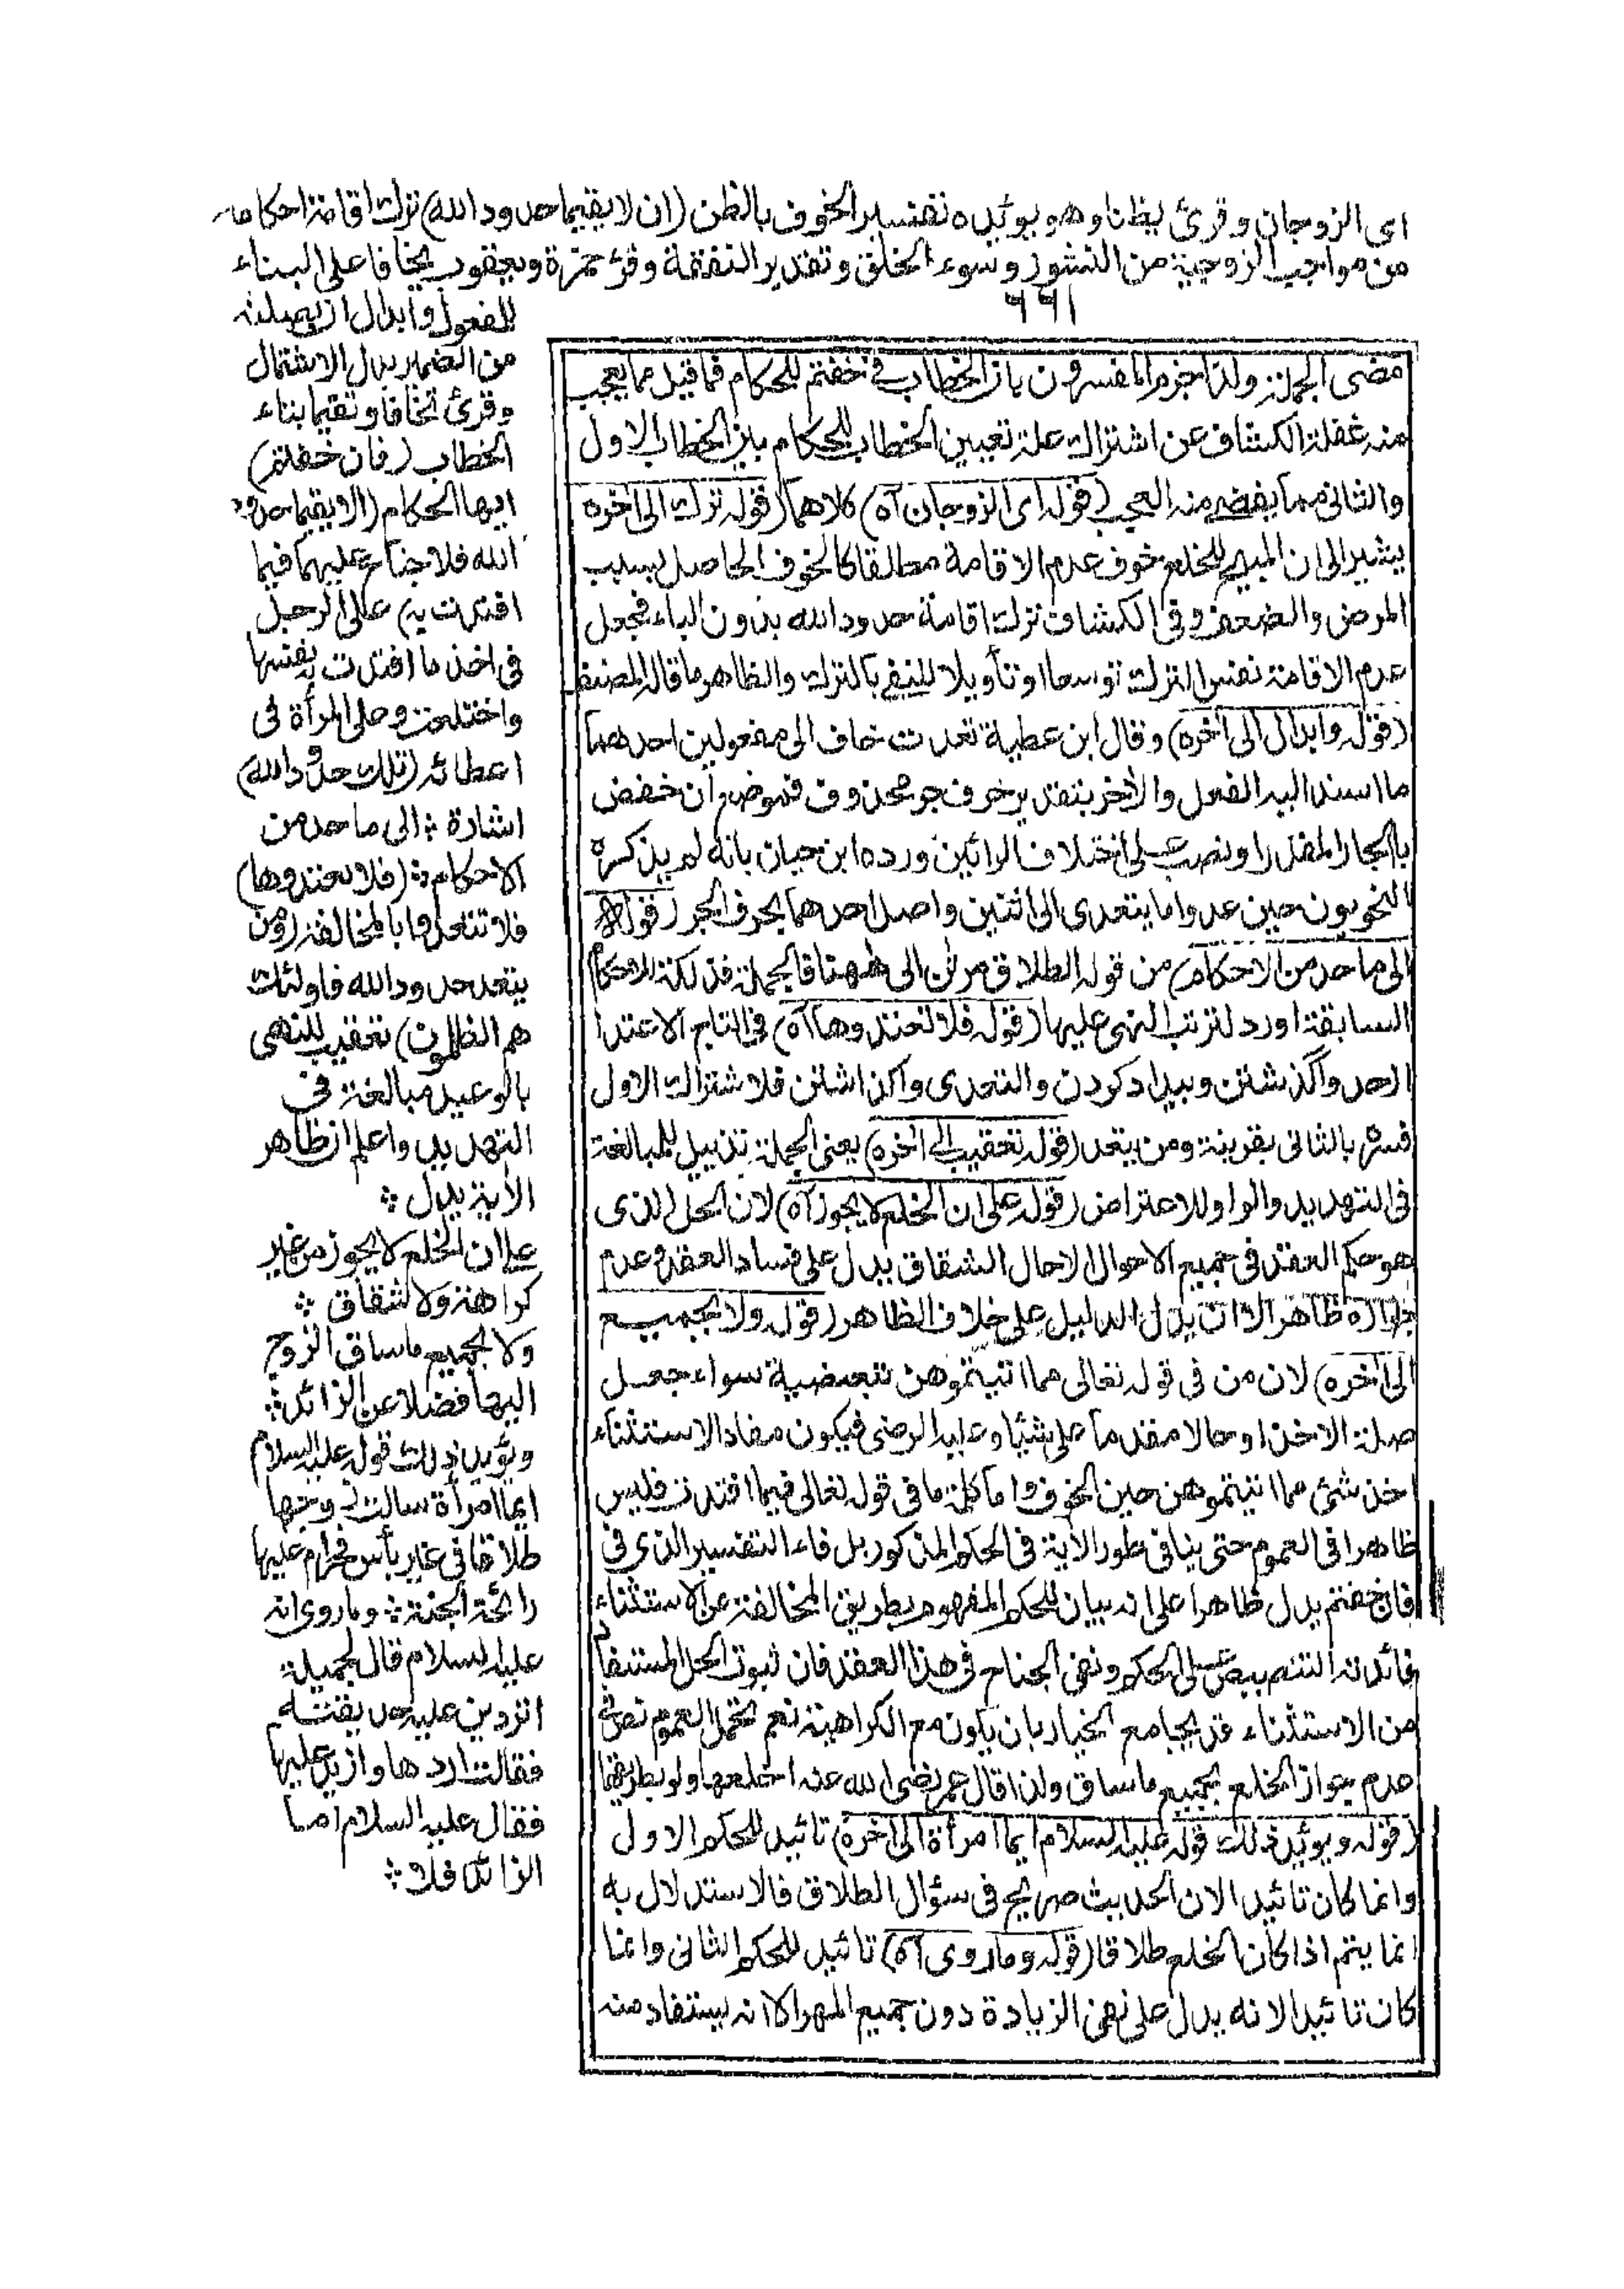 اى الزوجان وقرئ يظنا وهو يؤيده تفسير الخوف بالظن (ان لا يقيما حدود الله) بترك اقامة احكامه
من مواجب الزوجية من النشوز وسوء الخلق وتقدير النفقة وقرء حمزة ويعقوب يخافا على البناء
للمفعول وابدال ان بصلته
من الضمير بدل الاشتمال
وقرئ تخافا وتقيما بتاء
الخطاب (فان خفتم)
ايها الحكام (الا يقيما حدود
الله فلا جناح عليهما فيما
افتدت به) على الرجل
فى اخذ ما افتدت به نفسها
واختلعت وعلى المرأة فى
اعطائه (تلك حدود الله)
اشارة الى ما حد من
الاحكام (فلا تعتدوها)
فلا تتعدوها بالمخالفة (ومن
يتعد حدود الله فاولئك
هم الظلمون) تعقيب للنهى
بالوعيد مبالغة فى
التهديد واعلم ان ظاهر
الأية يدل
على ان الخلع لا يجوز من غير
كراهة ولا شقاق
ولا بجميع ما ساق الزوج
اليها فضلا عن الزائد
ويؤيد ذلك قوله عليه السلام
ايما امرأة سالت زوجها
طلاقا فى غير بأس فحرام عليها
رائحة الجنة وما روى انه
عليه السلام قال لجميلة
اتردين عليه حديقته
فقالت اردها وازيد عليها
فقال عليه السلام اما
الزائد فلا
٦٦١
مضى الجملة ولذا جزم المفسرون بان الخطاب فى خفتم للحكام فما قيل مما يعجب
منه غفلة الكشاف عن اشتراك علة تعيين الخطاب للحكام بين الخطاب الاول
والثانى مما يقضى منه العجب (قوله اى الزوجان اه) كلاهما (قوله ترك الى اخره
يشير الى ان المبيح للخلع خوف عدم الاقامة مطلقا كالخوف الحاصل بسبب
المرض والضعف وفى الكشاف ترك اقامة حدود الله بدون الباء فجعل
عدم الاقامة نفس الترك توسعا او تأويلا للنفى بالترك والظاهر ما قال المصنف
(قوله وابدال الى اخره) وقال ابن عطية تعدت خاف الى مفعولين احدهما
ما اسند اليه الفعل والأخر بتقدير حرف جر محذوف فموضع ان خفض
بالجار المقدر او نصب على اختلاف الرائين ورده ابن حيان بانه لم يذكره
النحويون حين عدوا ما يتعدى الى اثنين واصل احدهما بحرف الجر (قوله
الى ما حد من الاحكام) من قوله الطلاق مرتن الى ههنا فالجملة فذلكة للاحكام
السابقة اورد لترتب النهى عليها (قوله فلا تعتدوها اه) فى التاج الاعتدا
ازحد واگذشتن وبيداد كردن والتعدى واگذاشتن فلاشتراك الاول
فسره بالثانى بقرينة ومن يتعد (قوله تعقيب الى اخره) يعنى الجملة تذييل للمبالغة
فى التهديد والواو للاعتراض (قوله على ان الخلع لا يجوز اه) لان الحل الذى
هو حكم العقد فى جميع الاحوال الا حال الشقاق يدل على فساد العقد وعدم
جوازه ظاهرا الا ان يدل الدليل على خلاف الظاهر (قوله ولا بجميع
الى اخره) لان من فى قوله تعالى مما اتيتموهن تبعضية سواء جعل
صلة الاخذ او حالا مقدما على شيئا وعليه الرضى فيكون مفاد الاستثناء
اخذ شئ مما اتيتموهن حين الخوف واما كلمة ما فى قوله تعالى فيما افتدت فليس
ظاهرا فى العموم حتى ينافى ظهور الأية فى الحكم المذكور بل فاء التفسير الذى فى
فان خفتم يدل ظاهرا على انه بيان للحكم المفهوم بطريق المخالفة عن الاستثناء
فائدته التنصيص على الحكم ونفى الجناح فى هذا العقد فان ثبوت الحل المستفاد
من الاستثناء قد يجامع الخيار بان يكون مع الكراهية نعم يحتمل العموم
عدم جواز الخلع بجميع ما ساق ولذا قال عمر رضى الله عنه اخلعها ولو بقرطها
(قوله ويؤيد ذلك قوله عليه السلام ايما امرأة الى اخره) تائيد للحكم الاول
وانما كان تائيدا لان الحديث صريح فى سؤال الطلاق فالاستدلال به
انما يتم اذا كان الخلع طلاقا (قوله وما روى اه) تائيد للحكم الثانى وانما
كان تائيدا لانه يدل على نفى الزيادة دون جميع المهر الا انه يستفاد منه